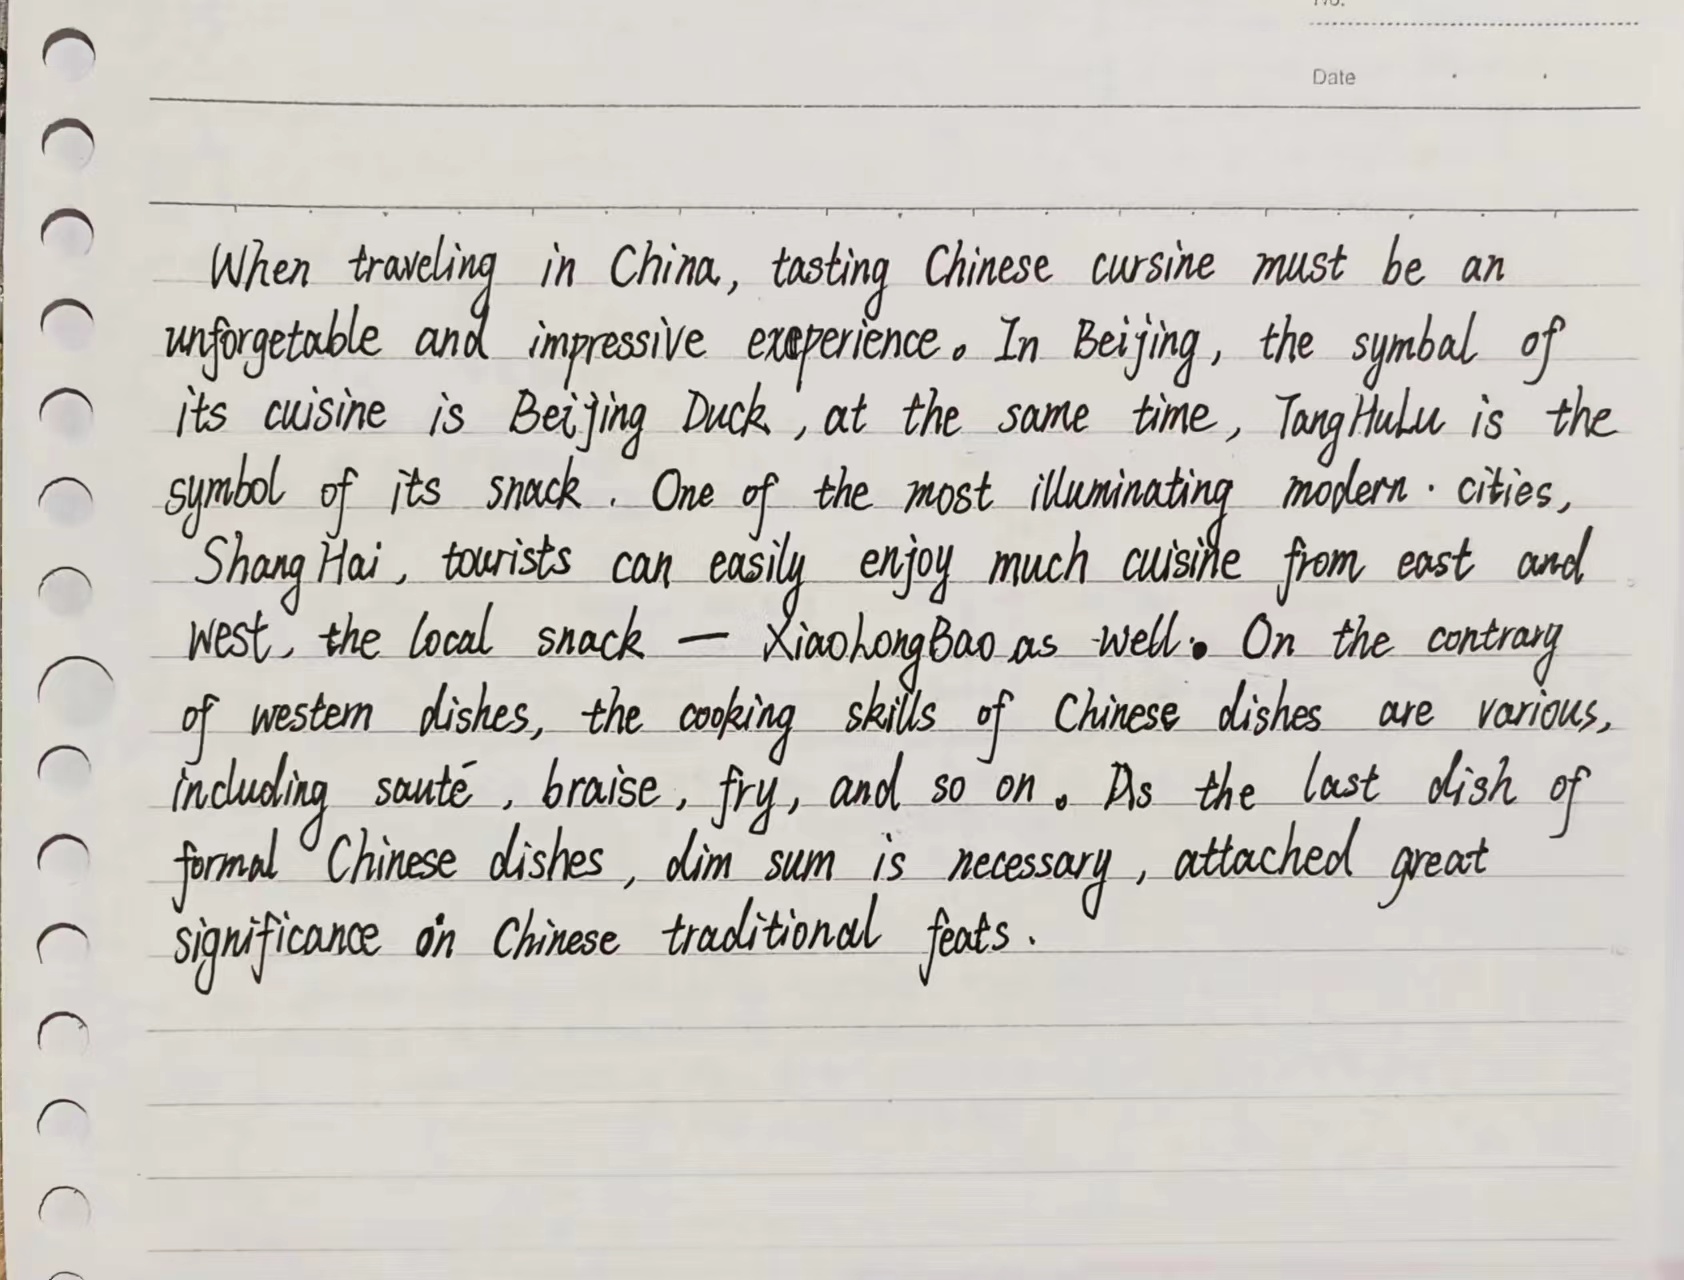 Date
When traveling in China, tasting Chinese cursine must be an
unforgetable and impressive experience. In Beijing, the symbal of
its cuisine is Beijing Duck, at the same time, TangHuLu is the
symbol of its snack. One of the most illuminating modern cities,
ShangHai, tourists can easily enjoy much cuisine from east and
west, the local snack — XiaoLongBao as well. On the contrary
of western dishes, the cooking skills of Chinese dishes are various,
including sauté, braise, fry, and so on. As the last dish of
formal Chinese dishes, dim sum is necessary, attached great
significance on Chinese traditional feats.